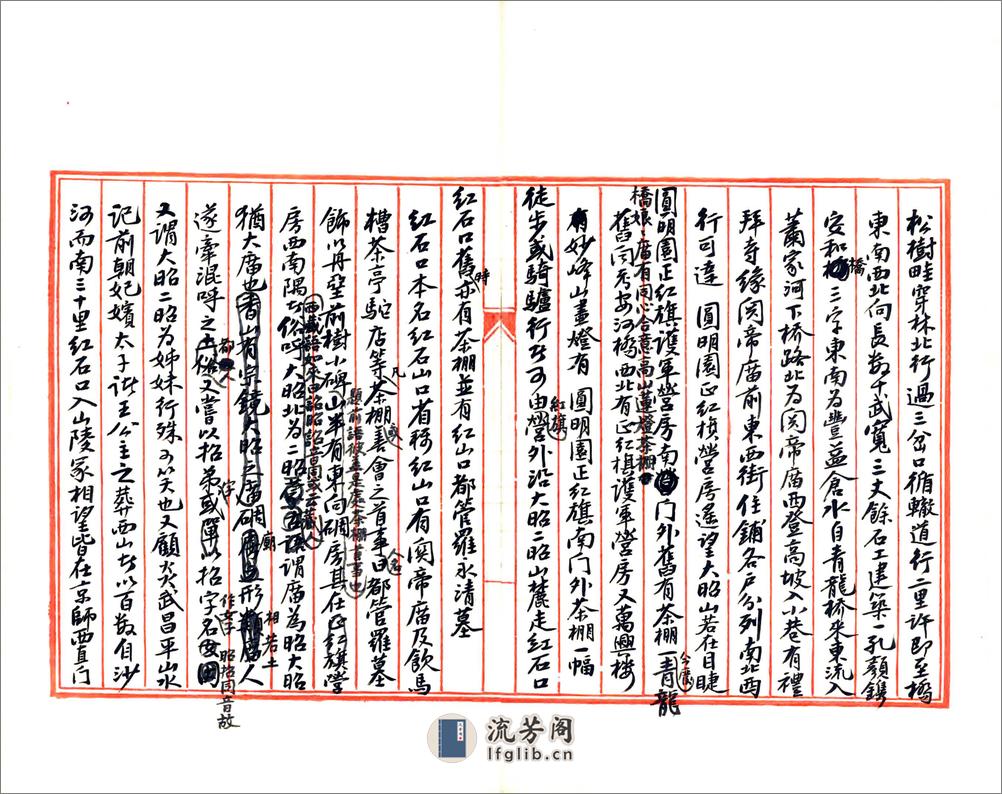 松樹畦穿林北行過三岔口循轍道行二里許即至橋
東南西北向長數十武寬三丈餘石工建築一孔額鐫
安和橋三字東南為豐益倉水自青龍橋來東流入
蕭家河下橋路北為関帝廣西登高坡入小巷有禮
拜寺緣関帝廣前東西街住鋪各戶分列南北西
行可達 圓明園正紅旗營房遙望大昭山若在目睫
圓明園正紅旗護軍營房南門外舊有茶棚一青龍
橋娘廣有同心合意高山蓮燈茶棚今廢
舊同安河橋西北有正紅旗護軍營房又萬興樓
有妙峰山畫燈有 圓明園正紅旗南門外茶棚一幅
徒步或騎驢行者可由紅旗營外沿大昭二昭山麓走紅石口
紅石口舊時亦有茶棚並有紅山口都管羅永清墓
紅石口本名紅石山口省稱紅山口有関帝廣及飲馬
槽茶亭駝店等凡茶棚善會之首事曰都管羅墓
題前語彼蓋是處茶棚首事也
飾以丹堊前樹小碑山半有東向碉房其在正紅旗營
房西南隅者俗呼大昭北為二昭謂廣為昭大昭
西藏語如來曰詔昭詔音同或云藏人
猶大廣也香山有宗鏡大昭之廣碉形廟相若土人
遂牽混呼之又嘗以招弟或單以招字名女
作字昭招同音故
又謂大昭二昭為姊妹行殊可笑也又顧炎武昌平山水
記前朝妃嬪太子諸王公主之葬西山者以百數自沙
河而南三十里紅石口入山陵冢相望皆在京師西直門
流芳阁
lfglib.cn